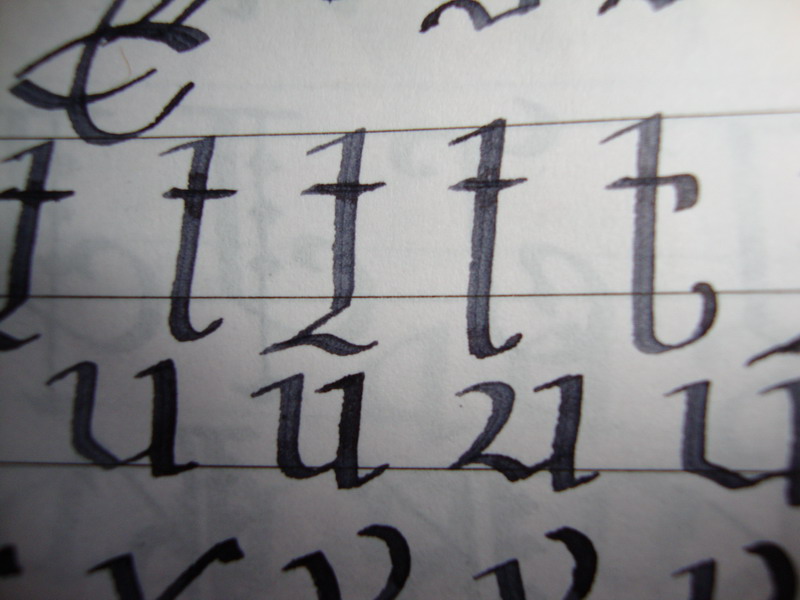 t t t t t
u u u u
v v v v